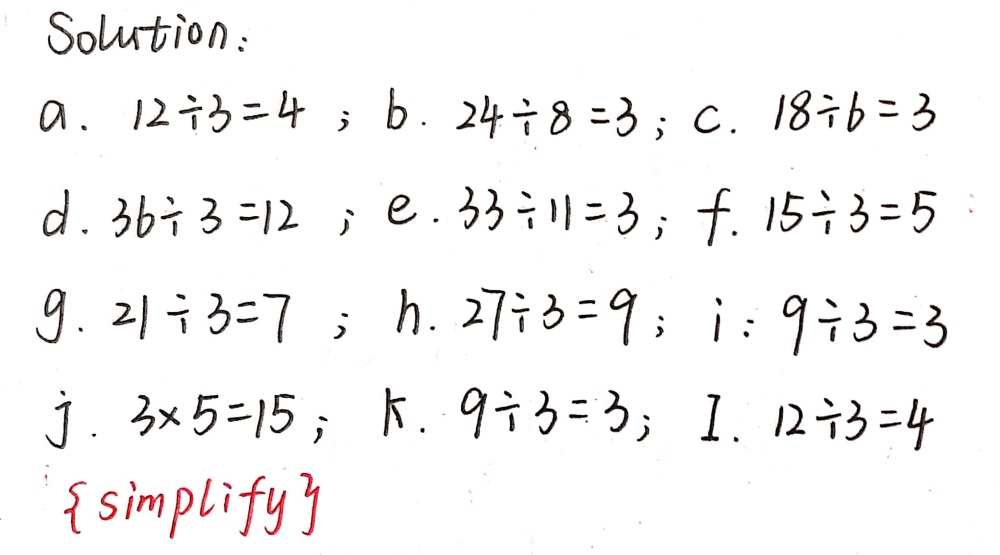 Solution:
a. 12÷3=4 ; b. 24÷8=3; c. 18÷6=3
d. 36÷3=12 ; e. 33÷11=3; f. 15÷3=5
g. 21÷3=7 ; h. 27÷3=9; i: 9÷3=3
j. 3×5=15; k. 9÷3=3; I. 12÷3=4
{simplify}